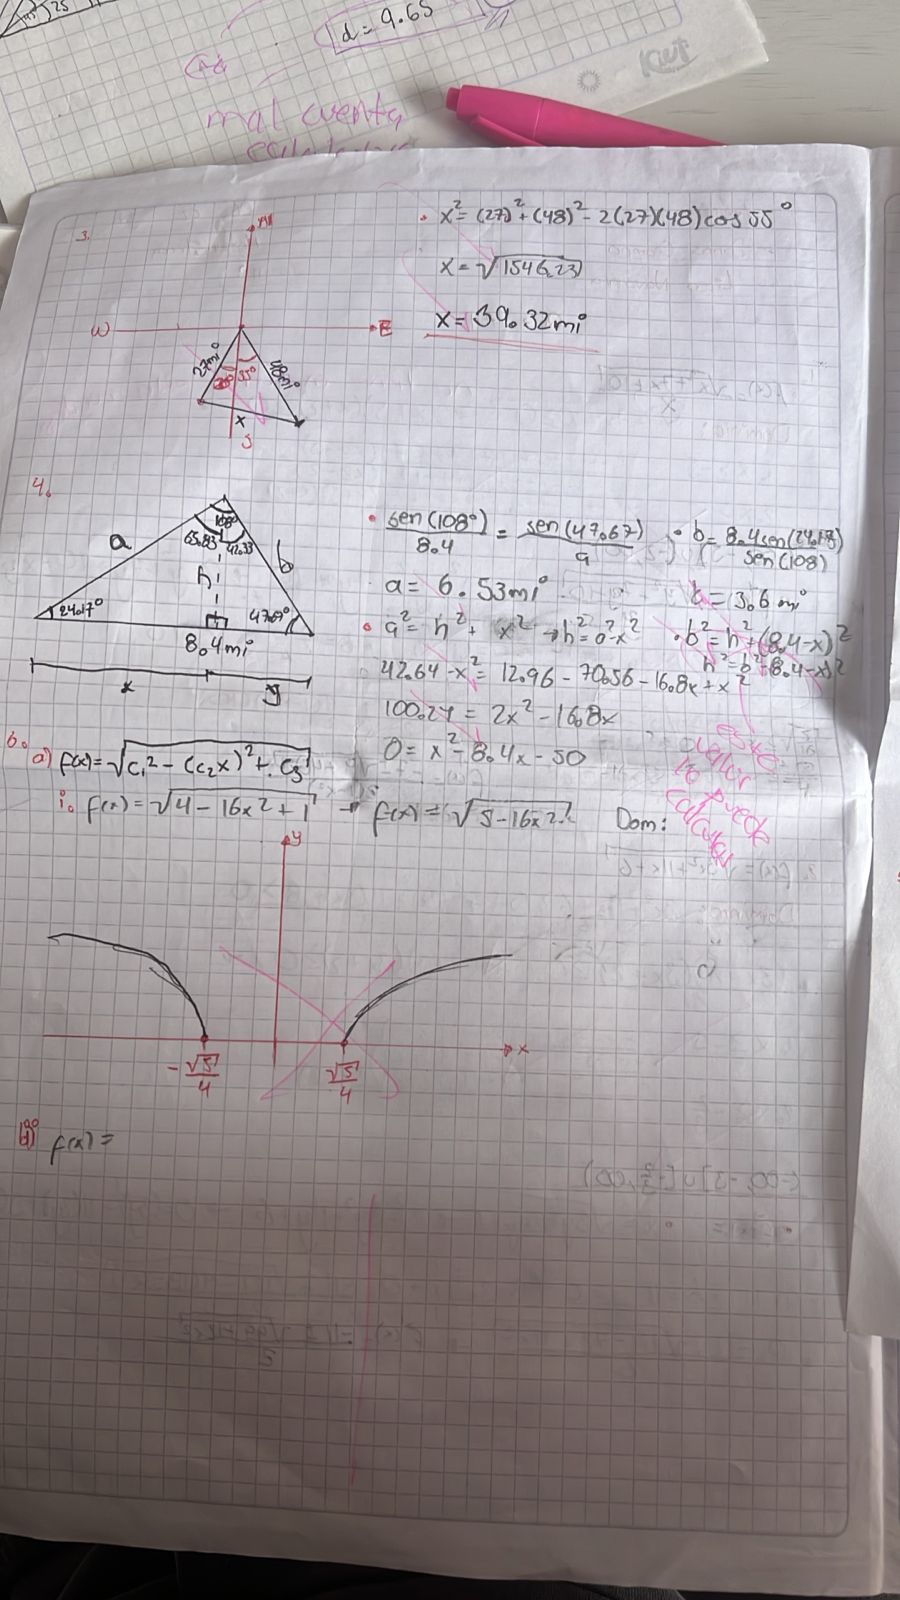 25
d = 9.65
mal cuenta
3.
N
W
E
27mi
48mi
35°
x
S
• x² = (27)² + (48)² - 2(27)(48)cos 55°
x = √1546.23
x = 39.32mi
4.
a
108°
65.83
42.33
b
h
24.17°
47.67°
8.4mi
x
y
• sen(108°)/8.4 = sen(47.67)/a
• b = 8.4sen(24.18)/sen(108)
a = 6.53mi
b = 3.6 mi
• a² = h² + x² → h² = a²-x²
• b² = h² + (8.4-x)²
h² = b² - (8.4-x)²
42.64 - x² = 12.96 - 70.56 - 16.8x + x²
100.24 = 2x² - 16.8x
0 = x² - 8.4x - 50
este
valor
lo puede
calcular
6.
a) f(x) = √c₁² - (c₂x)² + c₃
i. f(x) = √4 - 16x² + 1 → f(x) = √5-16x² Dom:
y
x
-√5/4
√5/4
f(x) =